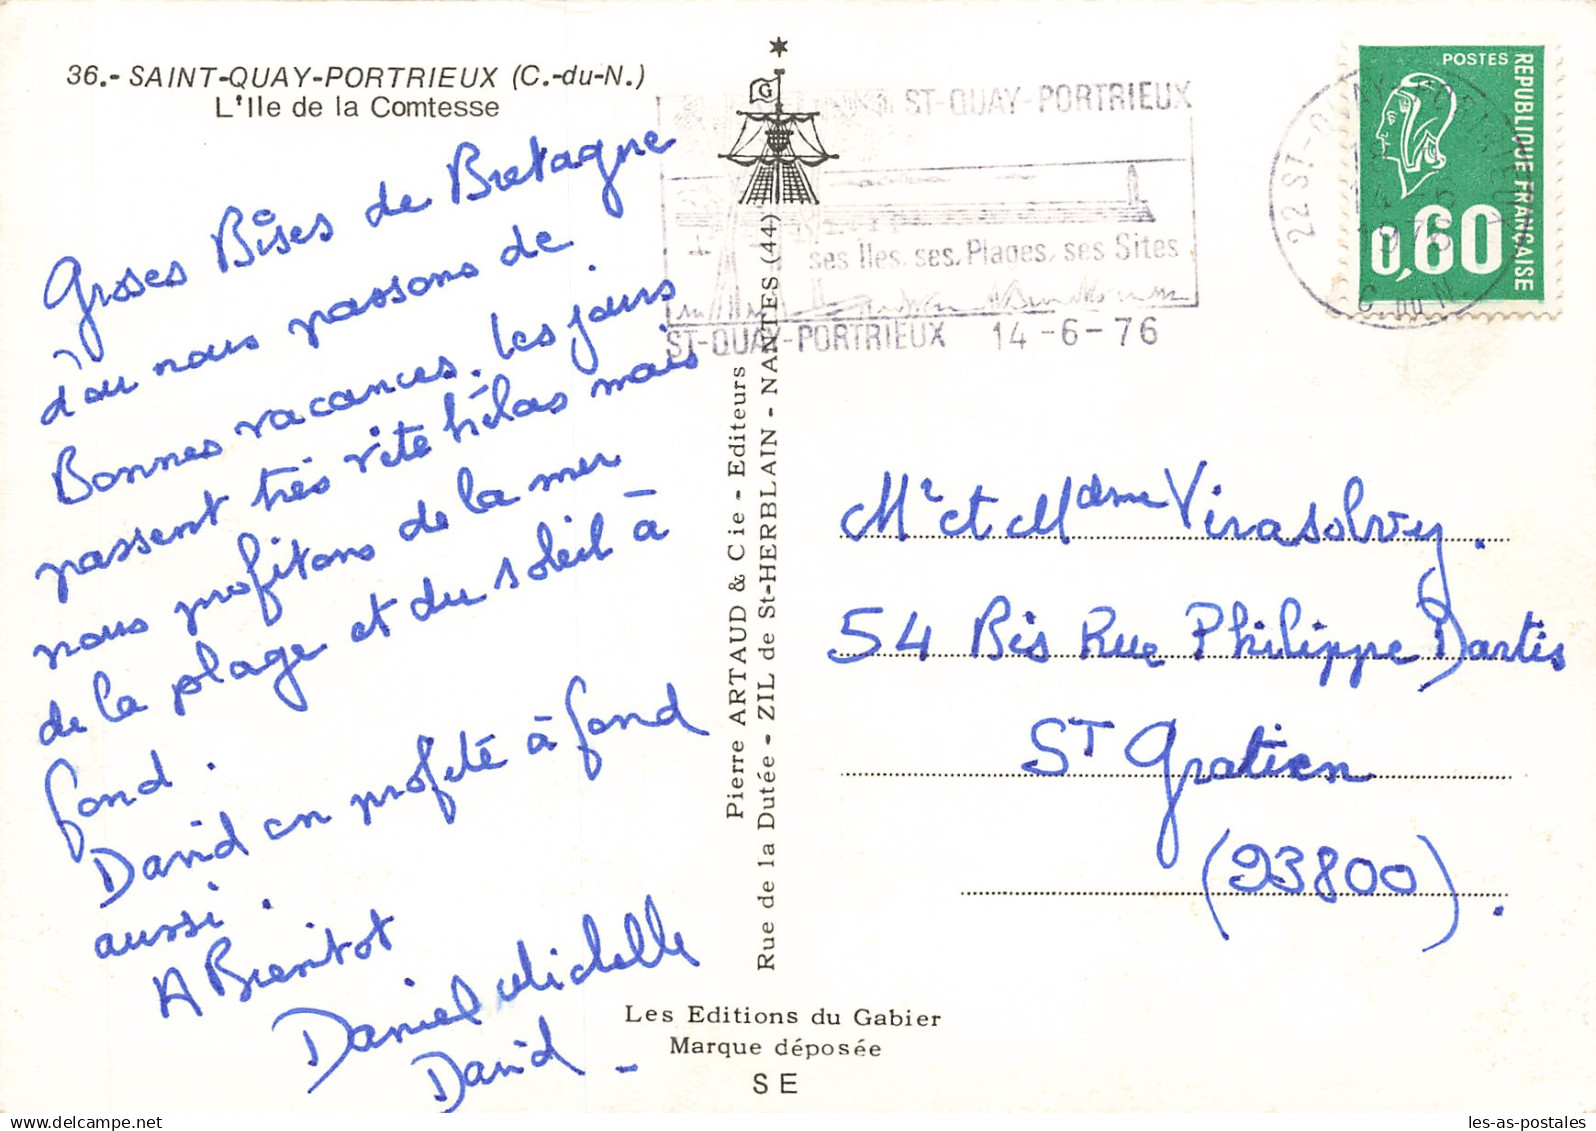 36.- SAINT-QUAY-PORTRIEUX (C.-du-N.)
L'Ile de la Comtesse
Groses Bises de Bretagne
d'ou nous passons de
Bonnes vacances. les jours
passent très vite hélas mais
nous profitons de la mer
de la plage et du soleil à
fond.
David en profite à fond
aussi.
A Bientot
Daniel Michelle
David -
G
Pierre ARTAUD & Cie - Editeurs
Rue de la Dutée - ZIL de St-HERBLAIN - NANTES (44)
Les Editions du Gabier
Marque déposée
SE
ST-QUAY-PORTRIEUX
ses Iles, ses Plages, ses Sites
ST-QUAY-PORTRIEUX 14-6-76
22 ST-QUAY-PORTRIEUX
1976
C. DU N.
POSTES
REPUBLIQUE FRANÇAISE
0,60
Mr et Mdme Virasolvey.
54 Bis Rue Philippe Dartis
ST Gratien
(93800).
les-as-postales
delcampe.net